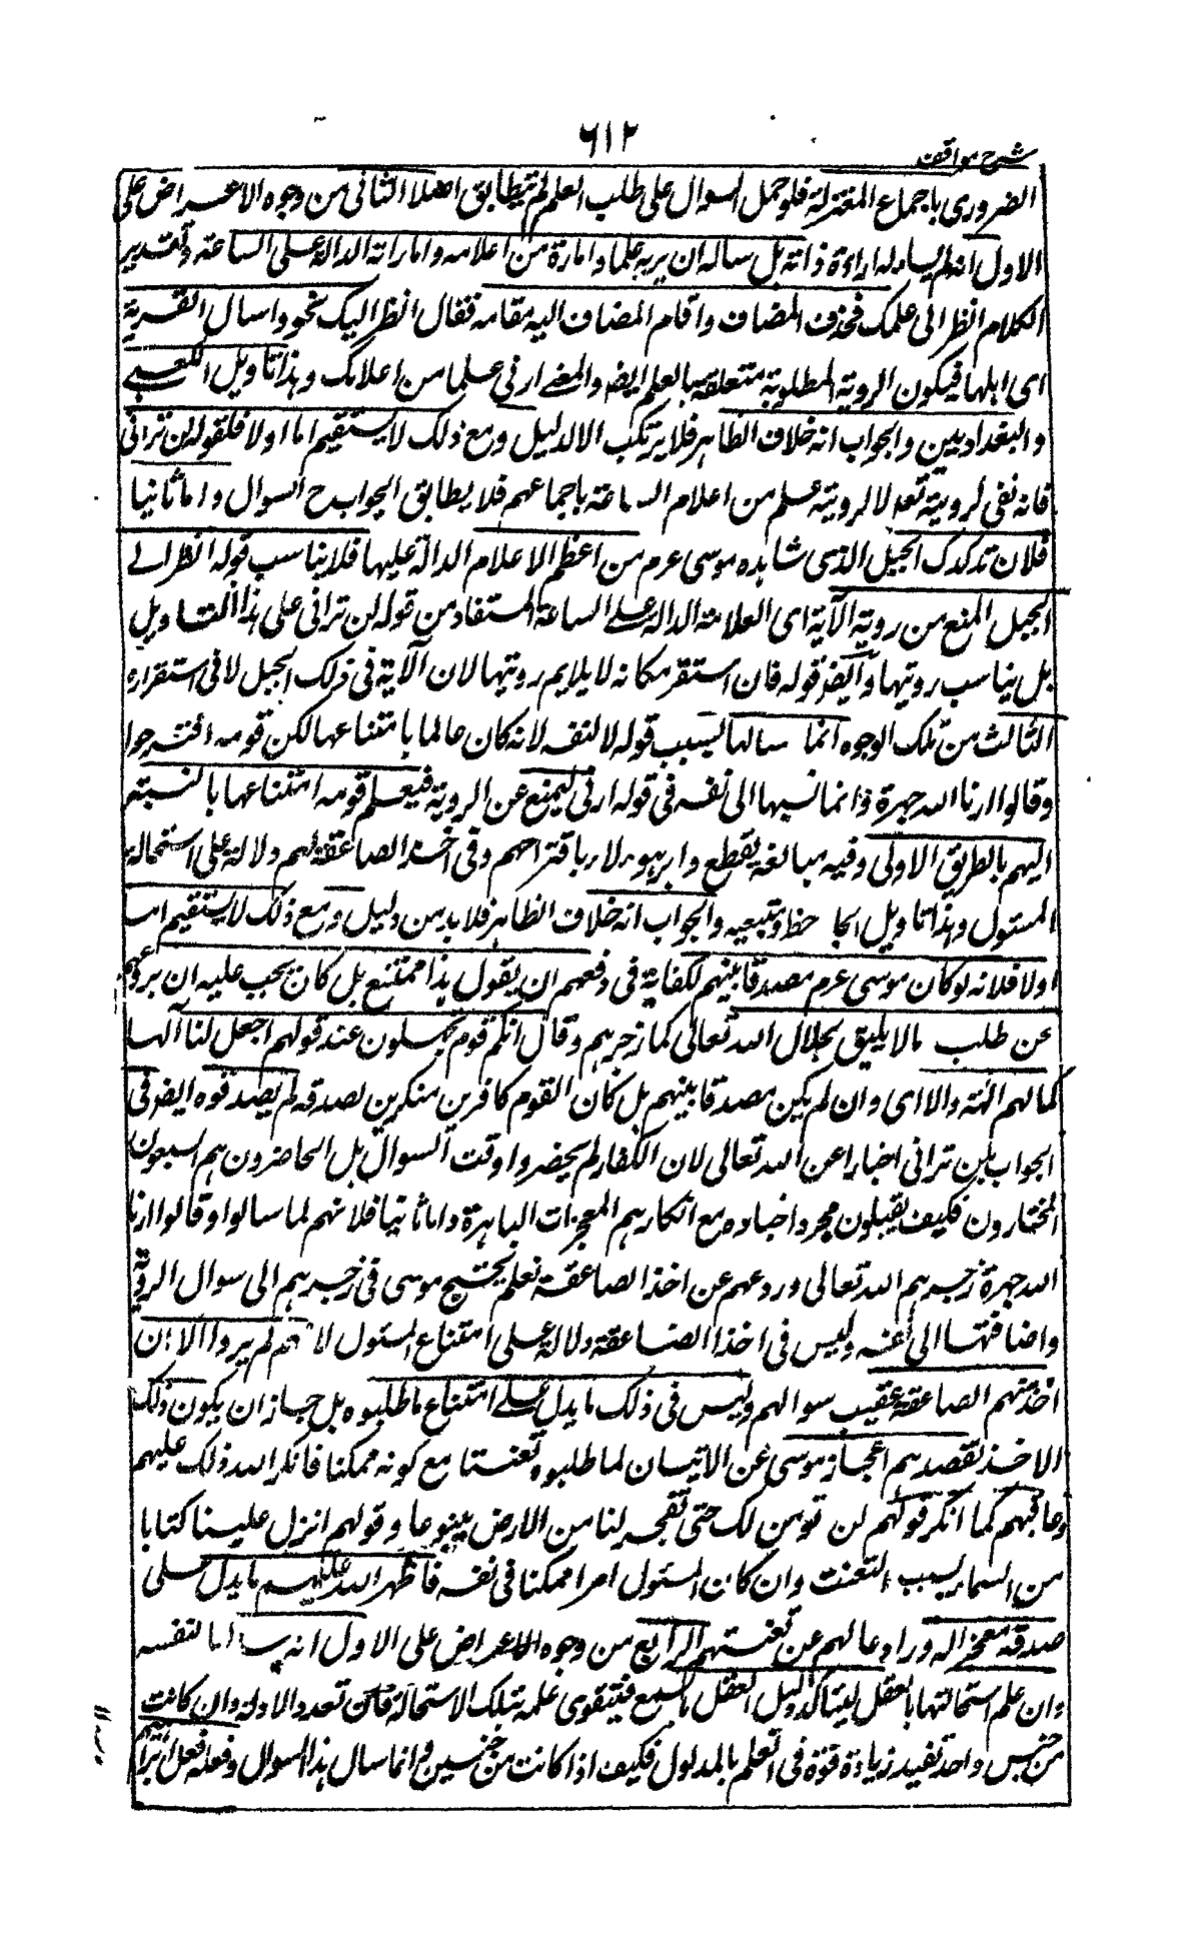 ٦١٢
شرح مواقف
الضروری باجماع المعتزلة فلو حمل السوال علی طلب العلم لم یتطابقا اصلا الثانی من وجوه الاعتراض علی
الاول انه لم یساله اراءة ذاته بل ساله ان یریه علما وامارة من اعلامه واماراته الدالة علی الساعة وتقدیر
الکلام انظر الی علمک فحذف المضاف واقام المضاف الیه مقامه فقال انظر الیک نحو واسال القریة
ای اهلها فیکون الرویة المطلوبة متعلقة بالعلم ایضا والمعنے ارنی علما من اعلامک وهذا تاویل الکعبے
والبغدادیین والجواب انه خلاف الظاهر فلا یرتکب الا لدلیل ومع ذلک لا یستقیم اما اولا فلقوله لن ترانی
فانه نفی لرویته تعالی لا لرویة علم من اعلام الساعة باجماعهم فلا یطابق الجواب ح السوال واما ثانیا
فلان تدکدک الجبل الذی شاهده موسی عرم من اعظم الاعلام الدالة علیها فلا یناسب قوله انظر الے
الجبل المنع من رویة الآیة ای العلامة الدالة علے الساعة المستفاد من قوله لن ترانی علی هذا التاویل
بل یناسب رویتها وایضا قوله فان استقر مکانه لا یلایم رویتها لان الآیة فی دک الجبل لا فی استقراره
الثالث من تلک الوجوه انما سالها بسبب قومه لا لنفسه لانه کان عالما بامتناعها لکن قومه اقترحوا
وقالوا ارنا الله جهرة وانما نسبها الی نفسه فی قوله ارنی لیمنع عن الرویة فیعلم قومه امتناعها بالنسبة
الیهم بالطریق الاولی وفیه مبالغة یقطع دابر باقتراحهم وفی اخذ الصاعقة لهم دلالة علی استحالة
المسئول وهذا تاویل الجاحظ ومتبعیه والجواب انه خلاف الظاهر فلا بد من دلیل ومع ذلک لا یستقیم اما
اولا فلانه لو کان موسی عرم مصدقا بینهم لکفایة فی دفعهم ان یقول هذا ممتنع بل کان یجب علیه ان یردعهم
عن طلب مالا یلیق بجلال الله تعالی کما زجرهم وقال انکم قوم تجهلون عند قولهم اجعل لنا الها
کما لهم الهة والا ای وان لم یکن مصدقا بینهم بل کان القوم کافرین منکرین لصدقه لم یصدقوه ایضا فی
الجواب بلن ترانی اخبارا عن الله تعالی لان الکفار لم یحضروا وقت السوال بل الحاضرون هم السبعون
المختارون فکیف یقبلون مجرد اخباره مع انکارهم المعجزات الباهرة واما ثانیا فلانهم لما سالوا وقالوا ارنا
الله جهرة زجرهم الله تعالی وردعهم عن اخذ الصاعقة فلم یحتج موسی فی زجرهم الی سوال الرویة
واضافتها الی نفسه ولیس فی اخذ الصاعقة دلالة علی امتناع المسئول لانهم لم یروا الا ان
اخذتهم الصاعقة عقیب سوالهم ولیس فی ذلک ما یدل علے امتناع ما طلبوه بل جاز ان یکون ذلک
الاخذ لقصدهم اعجاز موسی عن الاتیان لما طلبوه تعنتا مع کونه ممکنا فانکر الله ذلک علیهم
وعاقبهم کما انکر قولهم لن نومن لک حتی تفجر لنا من الارض ینبوعا وقولهم انزل علینا کتابا
من السماء بسبب التعنت وان کان المسئول امرا ممکنا فی نفسه فاظهر الله علیهم ما یدل علی
صدقه معجزا له ورادعا لهم عن تعنتهم الرابع من وجوه الاعتراض علی الاول انه سالها لنفسه
وان علم استحالتها بالعقل لیتاکد دلیل العقل بالسمع فیتقوی علمه بتلک الاستحالة فان تعدد الادلة وان کانت
من جنس واحد تفید زیادة قوة فی العلم بالمدلول فکیف اذا کانت من جنسین وانما سال هذا السوال وفعله فعل ابراهیم